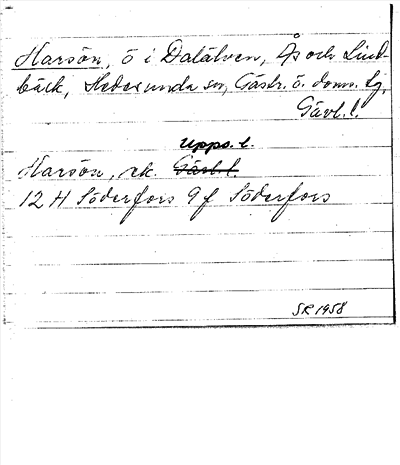 Harsön, ö i Dalälven, Ås och Lind-
bäck, Hedesunda sn, Gästr. ö. doms. tg,
Gävl. l.
Upps. l.
Harsön, ek. Gävl. l.
12 H Söderfors 9 f Söderfors
SR 1958